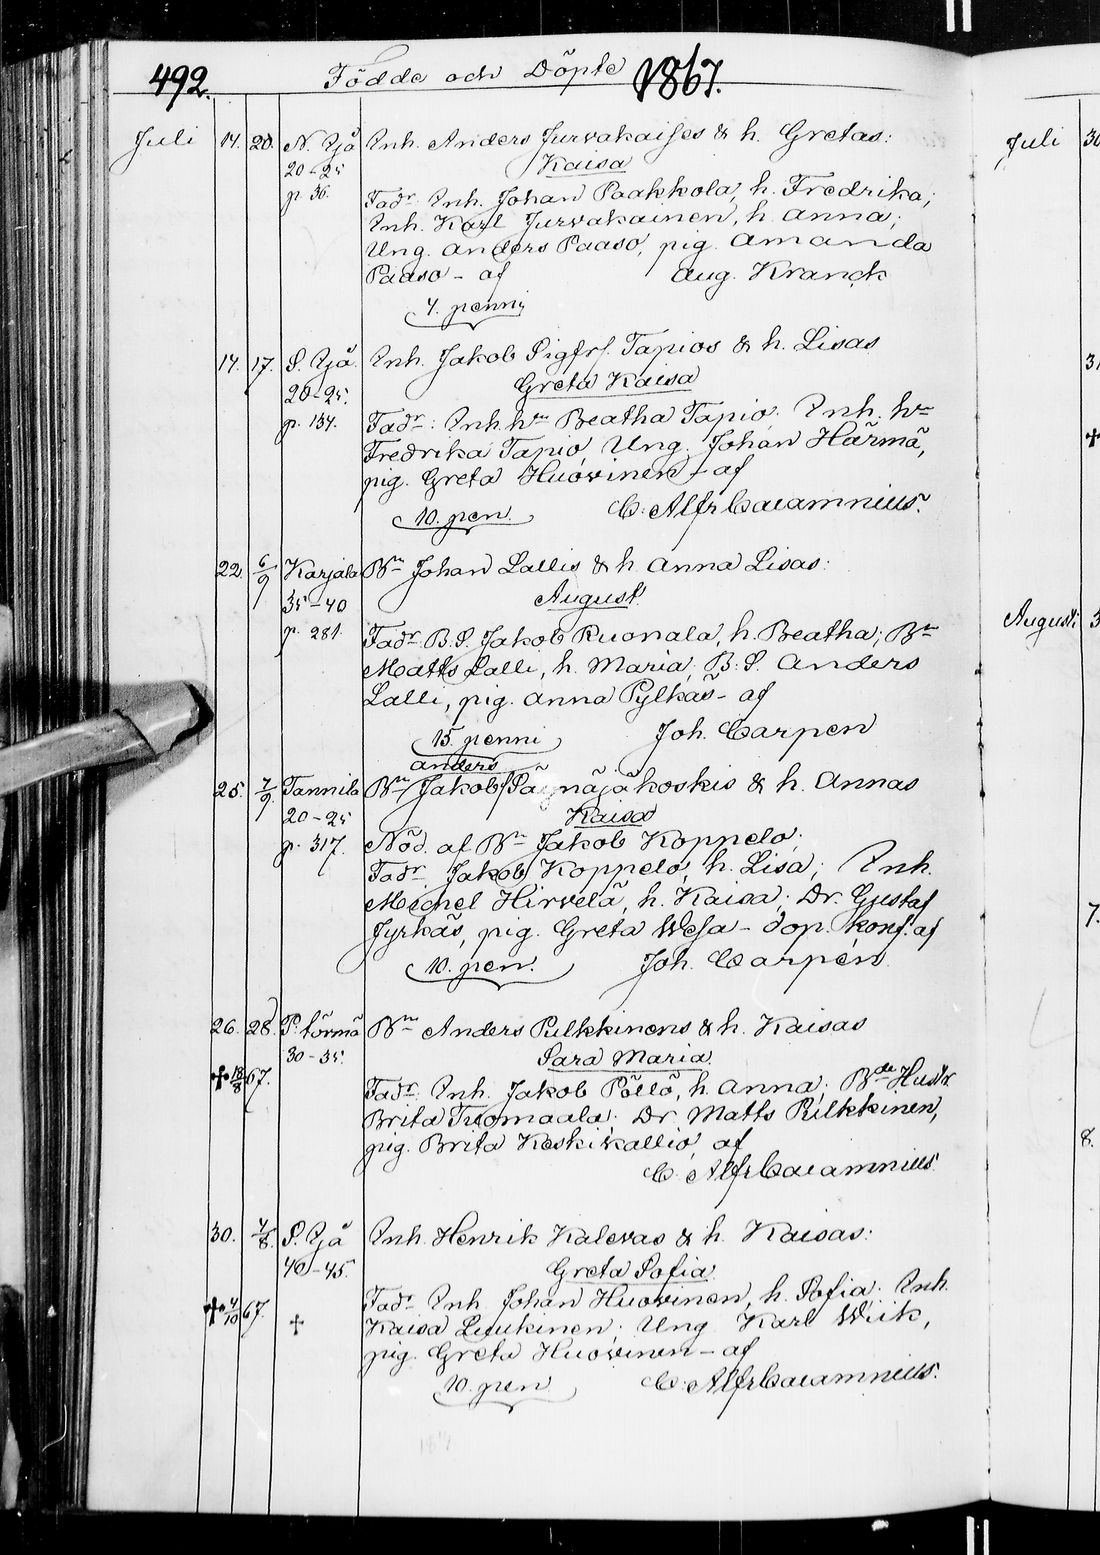 492. Födde och Döpte 1867.
Juli 14. 20. N. Ijå Inh. Anders Jurvakaises & h. Gretas:
20-25 Kaisa
p. 36. Fadr Inh. Johan Paakkola, h. Fredrika;
Inh. Karl Jurvakainen, h. Anna;
Ung. Anders Paaso, pig. Amanda
Paaso - af Aug. Kranck
4. penni
14. 17. S. Ijå. Inh. Jakob Sigfrs. Tapios & h. Lisas
20-25. Greta Kaisa
p. 134. Fadr: Inh. hn Beatha Tapio; Inh. hn
Fredrika Tapio, Ung. Johan Härmä,
pig. Greta Huovinen - af
10. pen. C. Alfr Calamnius.
22. 6/9 Karjala Bn Johan Lallis & h. Anna Lisas:
35-40 August
p. 281. Fadr B.S. Jakob Ruonala, h. Beatha; Bn
Matts Lalli, h. Maria; B.S. Anders
Lalli, pig. Anna Pylkäs - af
15. penni Joh. Carpen
Anders
25. 7/9 Tannila Bn Jakob Päknäjäkoskis & h. Annas
20-25 Kaisa
p. 317. Nöd. af Bn Jakob Koppelo;
Fadr Jakob Koppelo, h. Lisa; Inh.
Michel Hirvelä, h. Kaisa; Dr. Gustaf
Jyrkäs, pig. Greta Wesa - dop. konf. af
10. pen. Joh. Carpén
26. 28. P. törmä Bn Anders Pulkkinens & h. Kaisas
30-35. Sara Maria
✝ 18/8 67. Fadr: Inh. Jakob Pöllö, h. Anna; Bde Hustr
Brita Tuomaala; Dr. Matts Pulkkinen,
pig. Brita Keskikallio, af
C. Alfr Calamnius
30. 4/8. S. Ijå Inh. Henrik Kalevas & h. Kaisas:
40-45. Greta Sofia
✝ 4/10 67. ✝ Fadr Inh. Johan Huovinen, h. Sofia; Inh.
Kaisa Luukinen; Ung. Karl Wiik,
pig. Greta Huovinen - af
10. pen C. Alfr Calamnius.
Juli 30
31
✝
Augusti 3
7.
8.